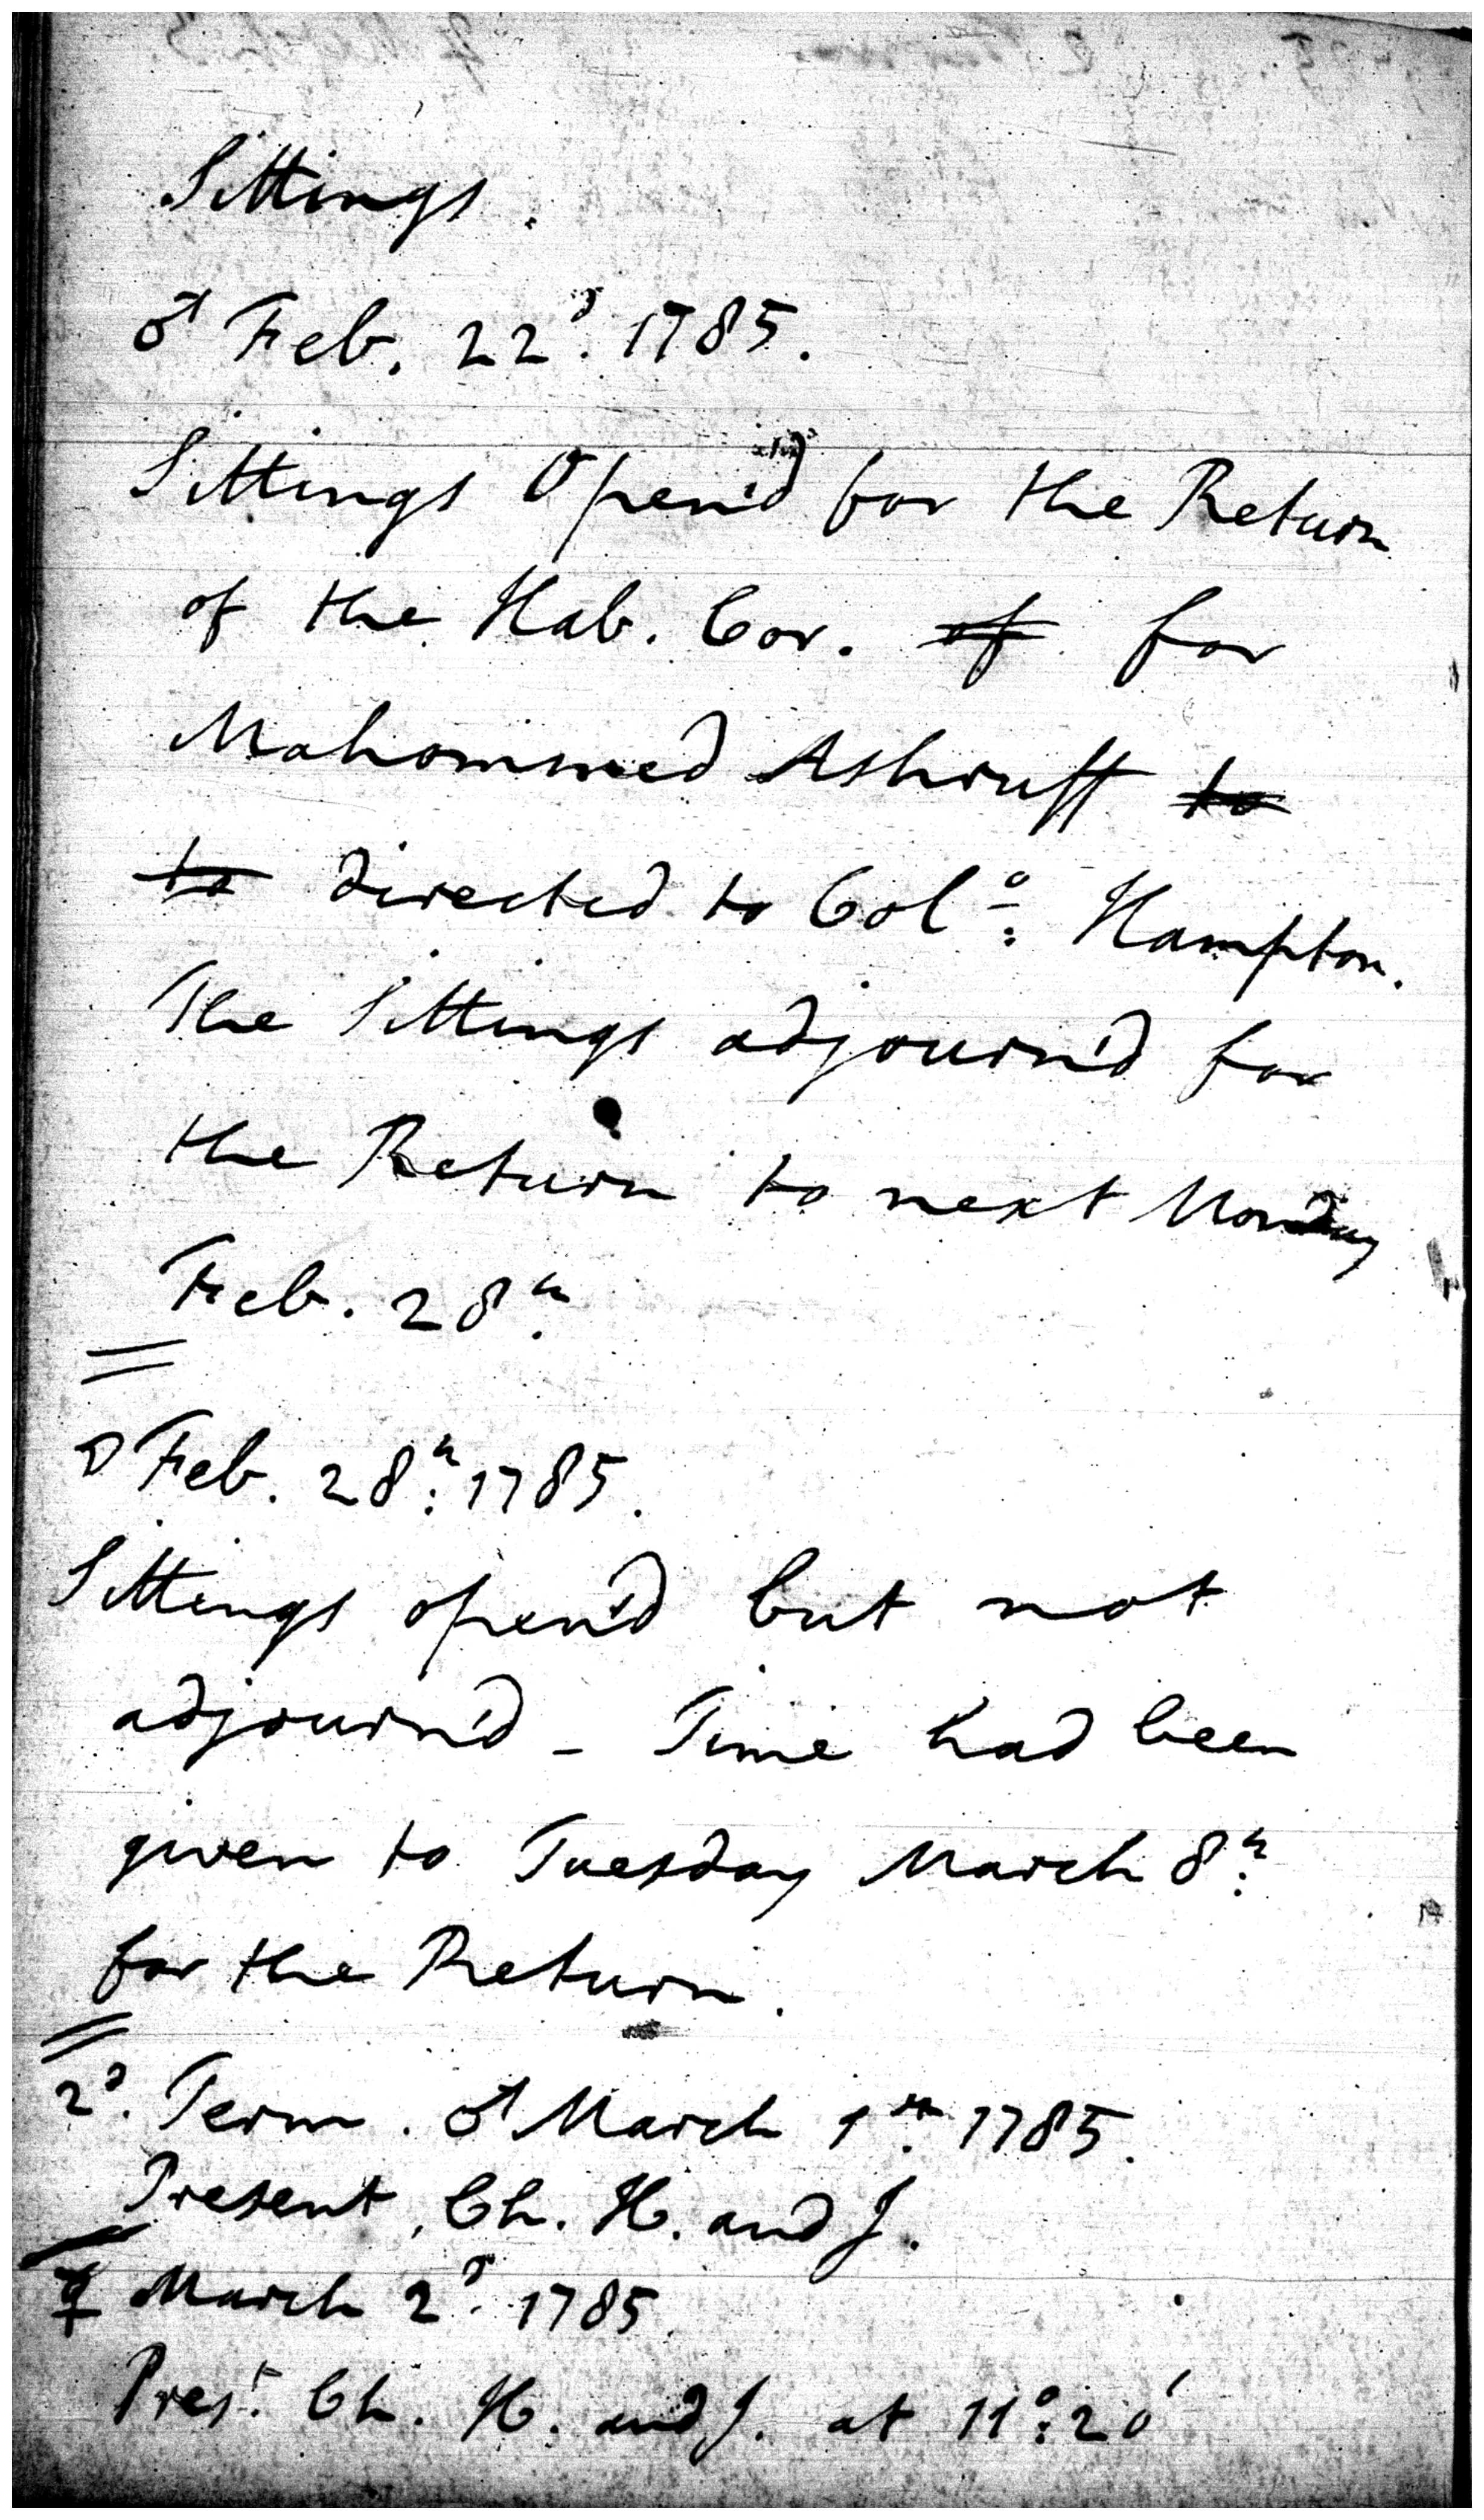 Sittings.
♂ Feb. 22d. 1785.
Sittings Open'd for the Return
of the Hab. Cor. ~~of~~ for
Mahommed Ashruff ~~to~~
~~to~~ directed to Colo: Hampton.
The Sittings adjourn'd for
the Return to next Monday
Feb. 28h.
☽ Feb. 28h: 1785.
Sittings open'd but not
adjourn'd - Time had been
given to Tuesday March 8h:
for the Return.
2d. Term. ♂ March 1st. 1785.
Present, Ch. H. and J.
☿ March 2d. 1785.
Prest. Ch. H. and J. at 11°:20'